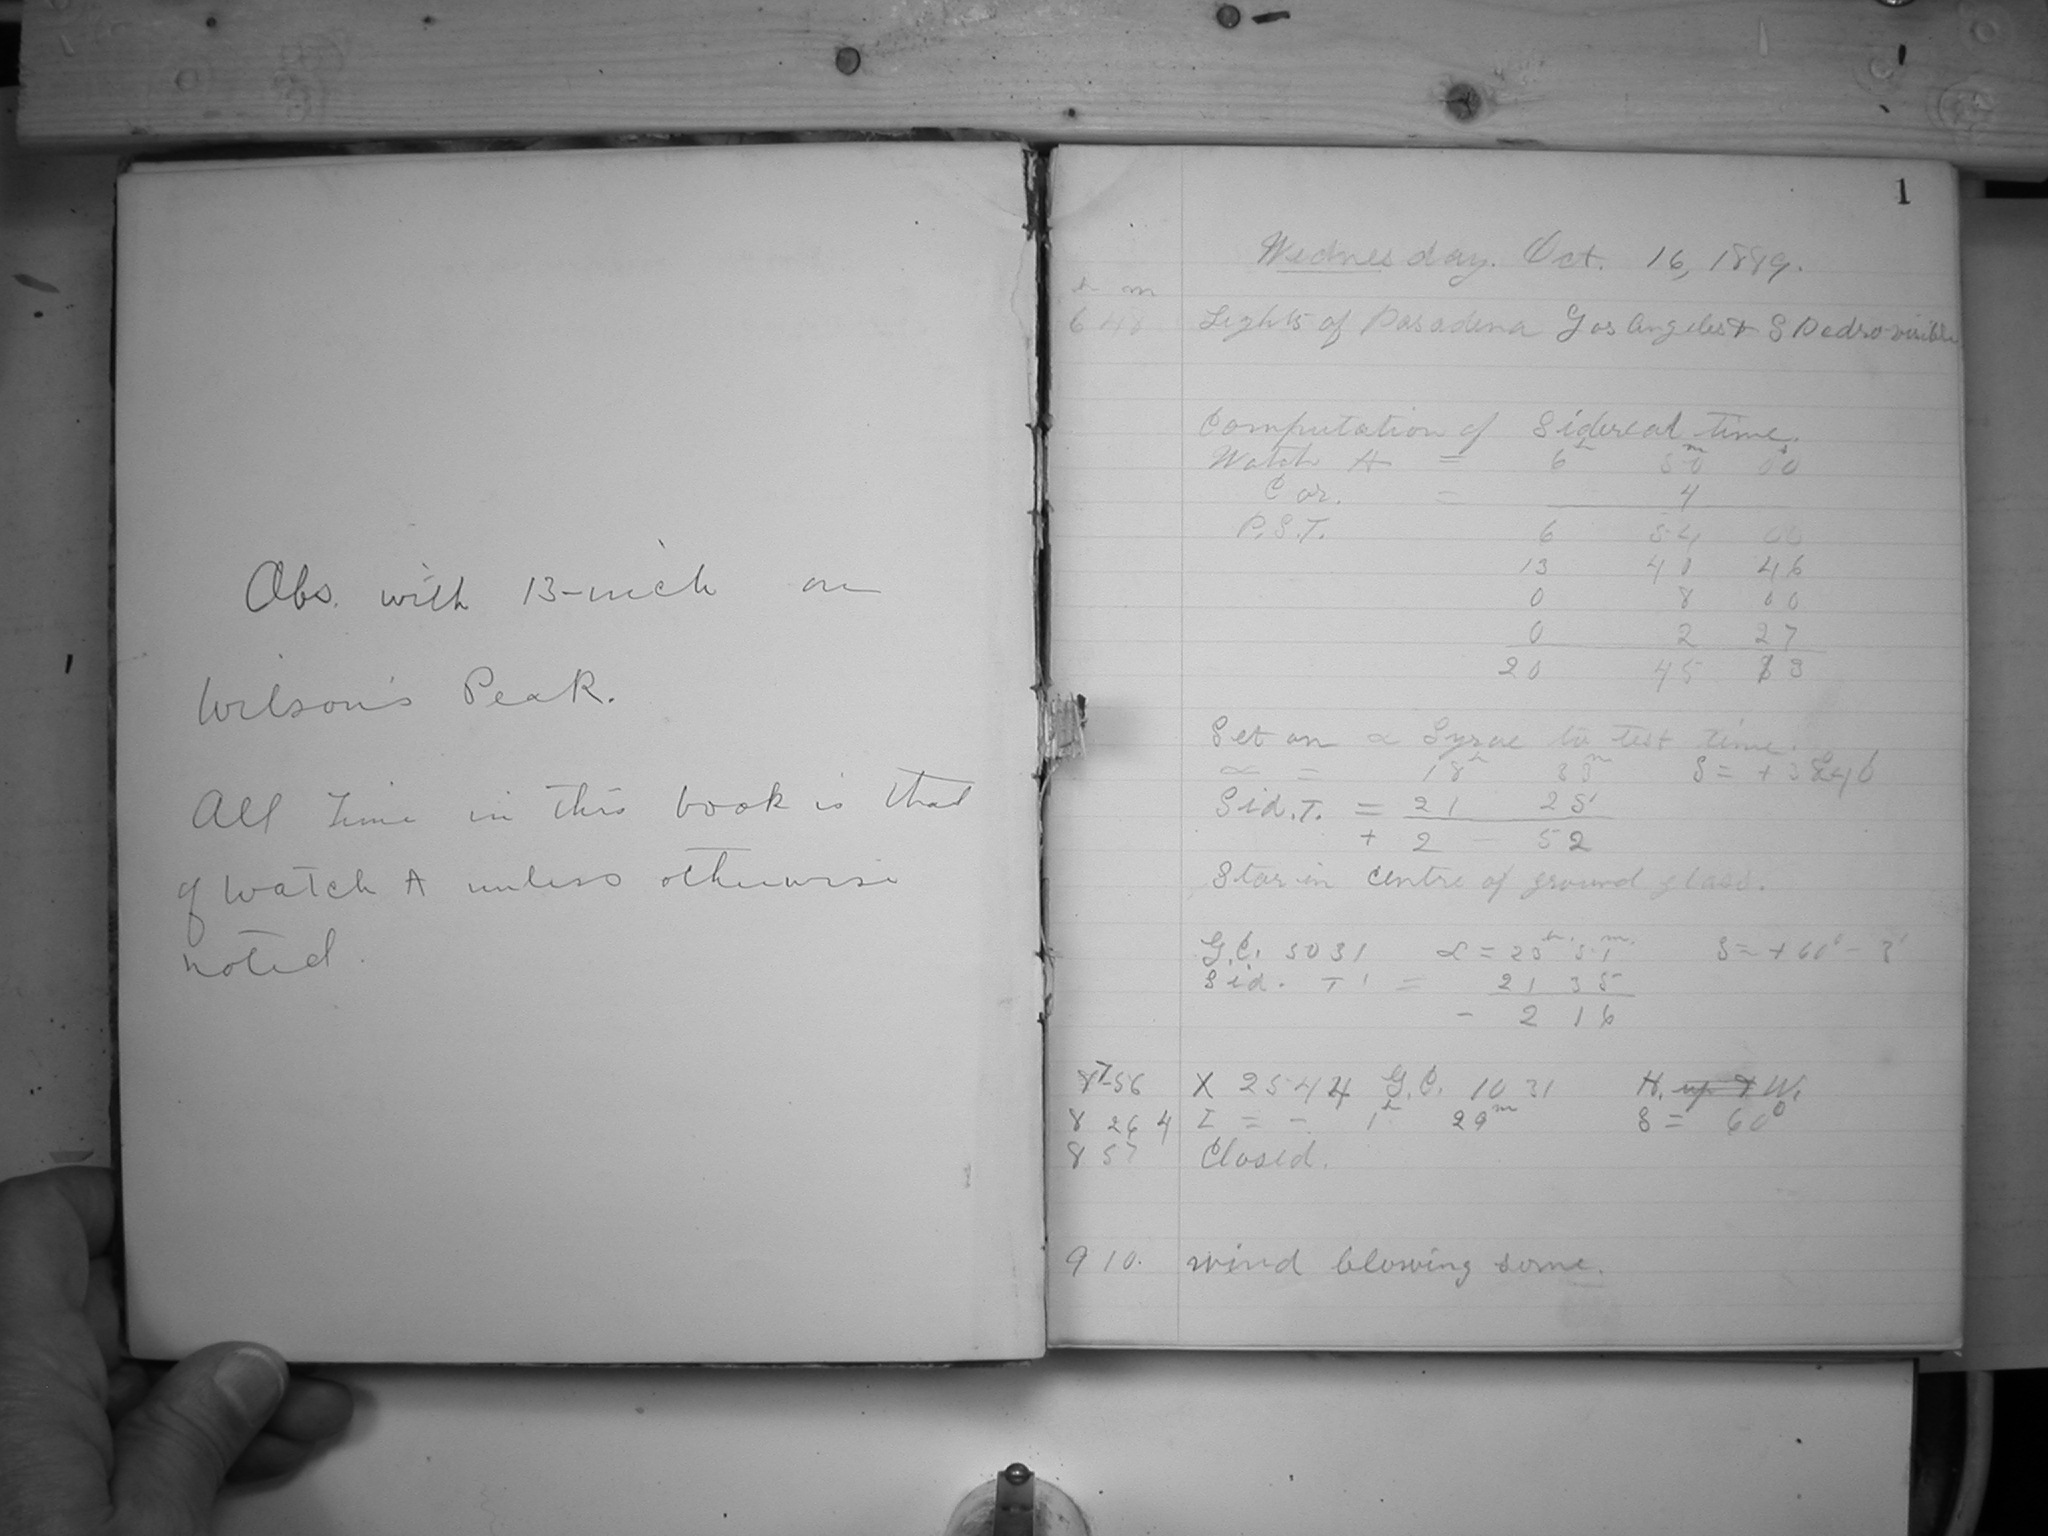 Obs. with 13-inch on
Wilson's Peak.
All Time in this book is that
of watch A unless otherwise
noted.
1
Wednesday. Oct. 16, 1889.
h m
6 48 Lights of Pasadena Los Angeles & S Pedro visible
Computation of Sidereal time.
Watch A = 6h 50m 00s
Cor. = 4
P.S.T. 6 54 00
13 40 46
0 8 00
0 2 27
20 45 13
Set on α Lyrae to test time.
α = 18h 33m δ = +38° 40
Sid. T. = 21 25
+ 2 - 52
Star in centre of ground glass.
G.C. 5031 α = 23h 51m. δ = +60° -
Sid. T = 21 35
- 2 16
7 56 X 2544 G.C. 1031 H. up & W.
8 26 4 I = - 1h 29m δ = 60°
8 57 Closed.
9 10. wind blowing some.